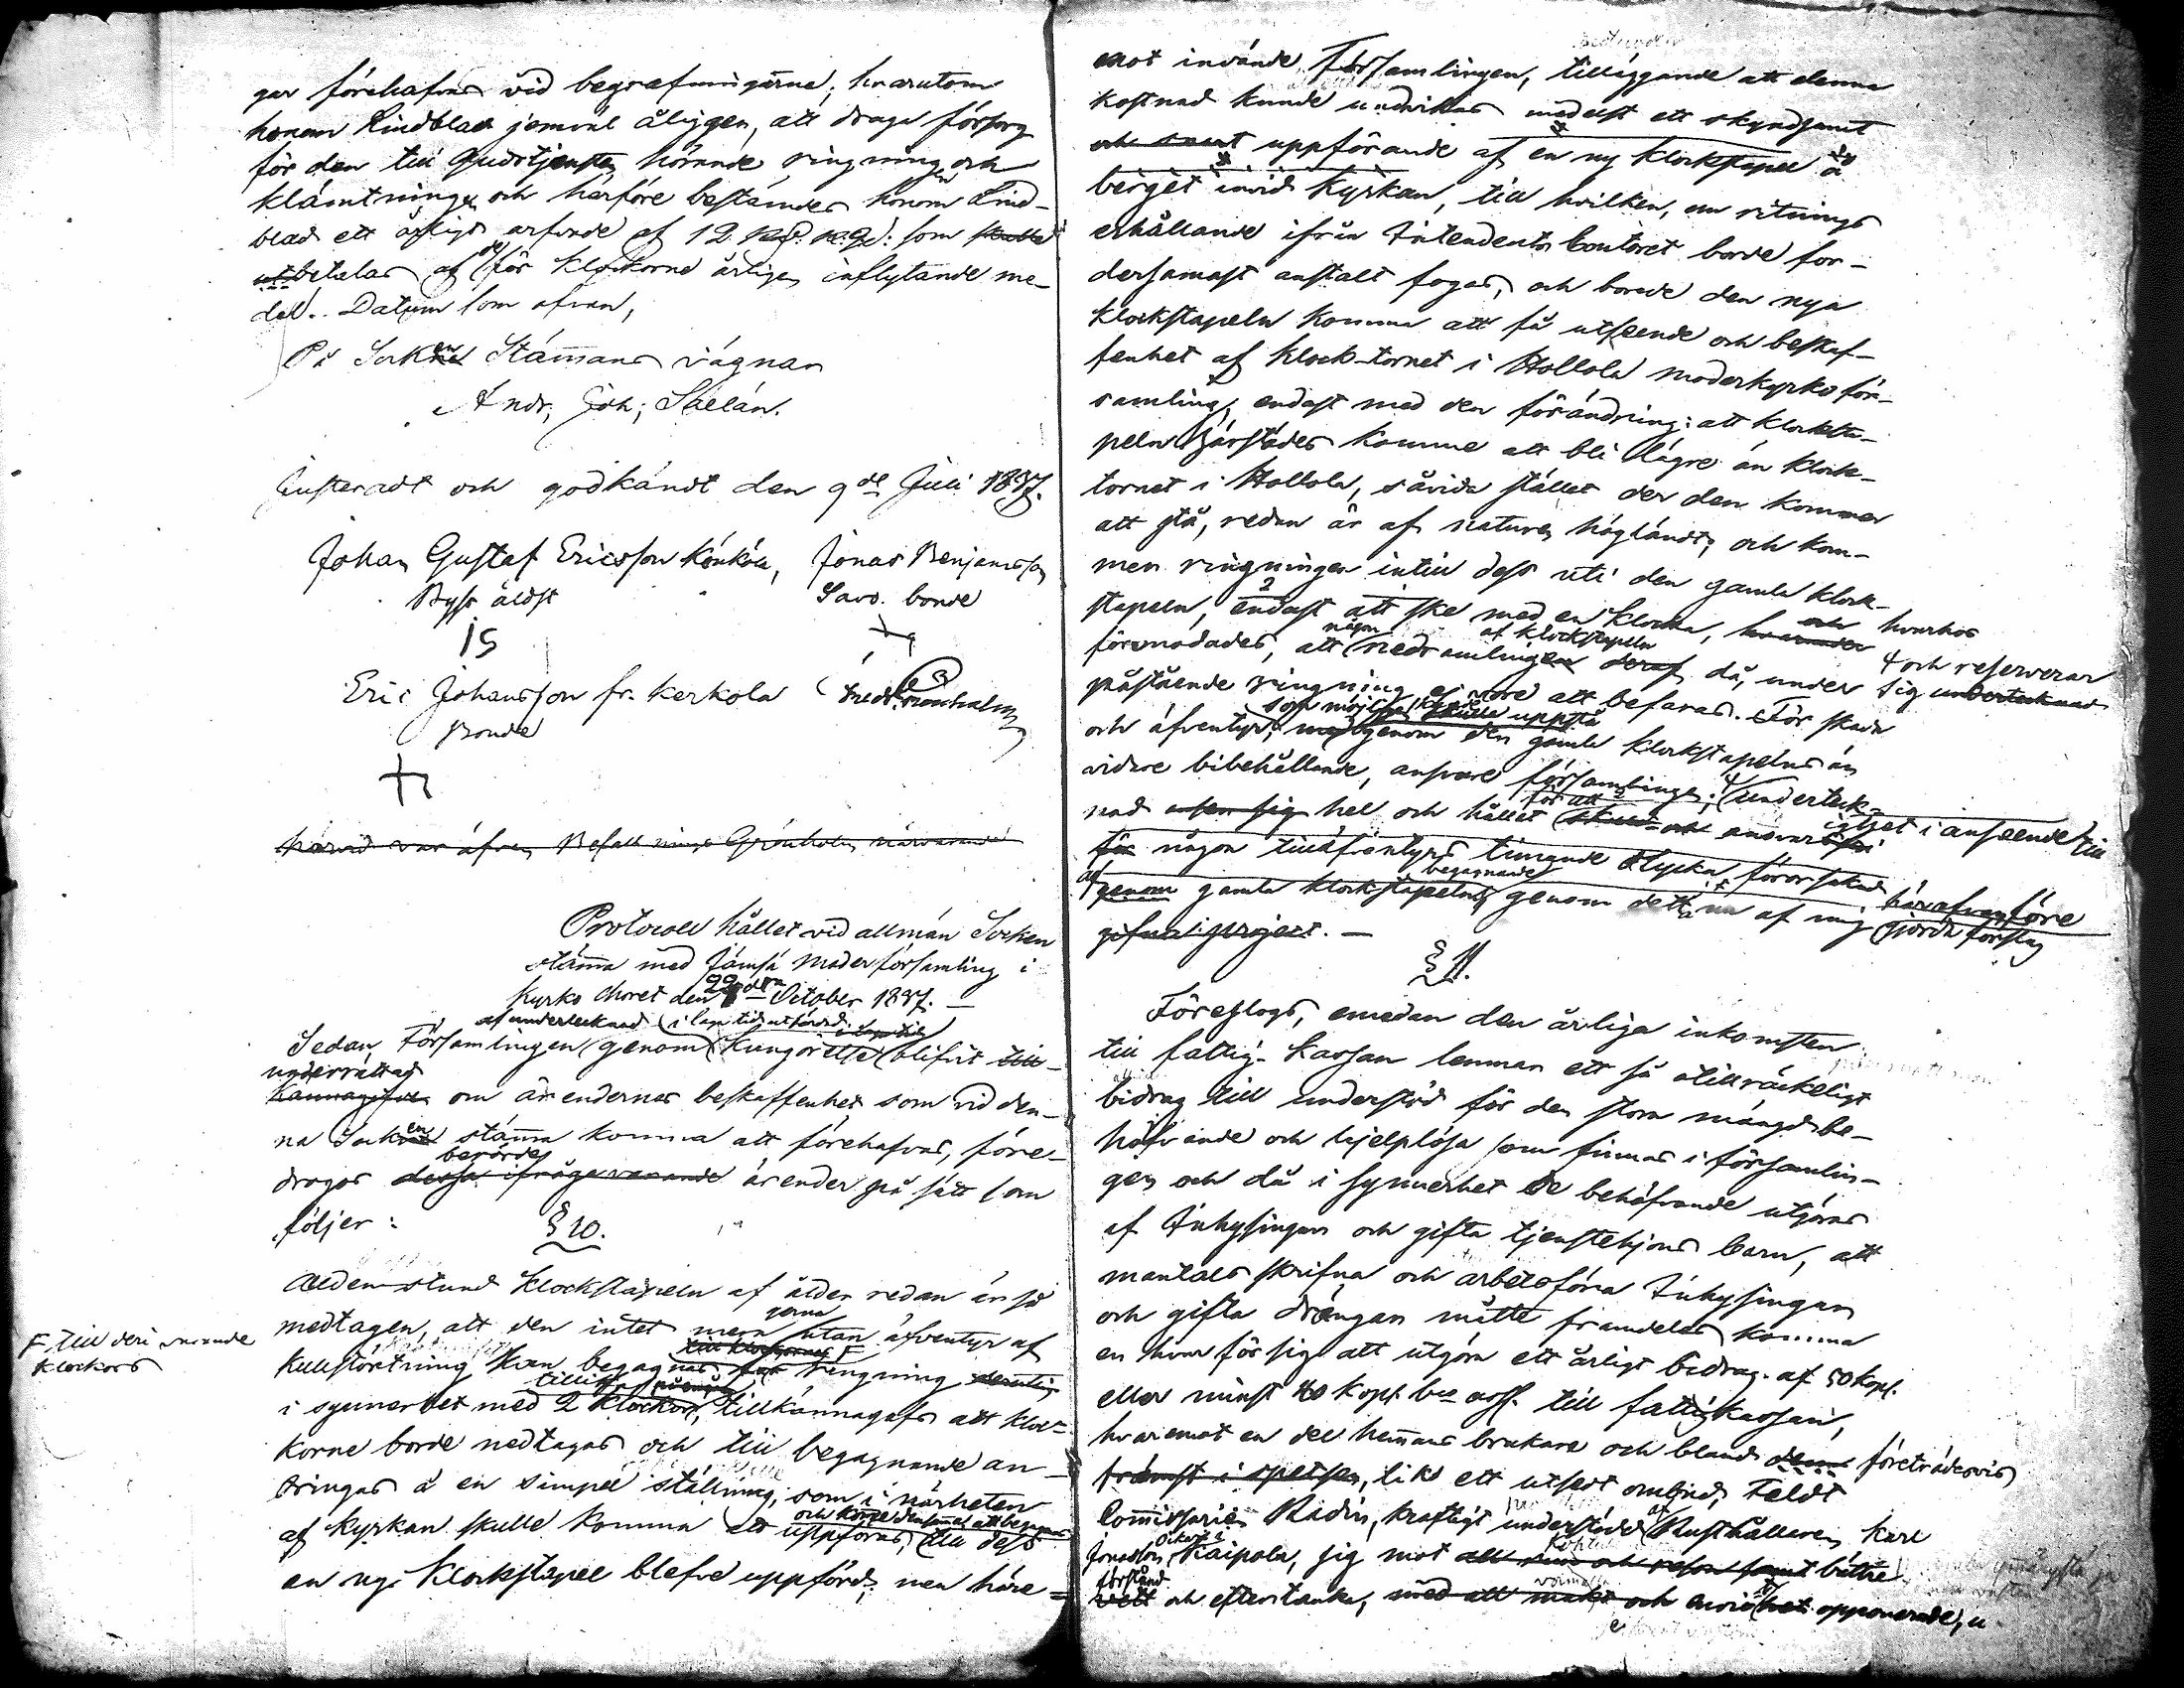 gar förehafvas vid begrafningarna, hvarutom
honom Lindblad jemväl åligger, att draga försorg
för den till Gudstjensten hörande ringning och
klämtningen och härföre bestämdes honom Lind-
blad ett årligt arfvode af 12 Rub. som skulle
utbetalas af de för klockorne årligen inflytande me-
del. Datum som ofvan,
På Sockne Stämmans vägnar
Andr. Joh. Saelán.
Justeradt och godkändt den 9de Juli 1837.
Johan Gustaf Ericsson Könköla, Jonas Benjamsson
Byss äldst Savo. bonde
IS
Eric Johansson fr. Kerkola Fredr. Grönholm
Bonde
härvid var äfven Befallnings Grönholm närvarande
Protocoll hållet vid allmän Socken
stämma med Jämsä Moderförsamling i
Kyrko Choret den 22ndra October 1837. —
af undertecknad i laga tid utfärdad
Sedan Församlingen genom kungörelse blifvit till-
underrättad
kännagifven om ärendernas beskaffenhet som vid den-
na Sockne stämma komma att förehafvas, före-
berörde
drogos dessa ifråga varande ärender på sätt som
följer:
§ 10.
Alldenstund Klockstapeln af ålder redan är så
medtagen, att den intet mera utan äfventyr af
F till deri varande
klockors
kullstörtning kan begagnas för ringning
i synnerhet med 2 klockor, tillkännagafs att kloc-
korne borde nedtagas och till begagnande an-
bringas å en simpel ställning, som i närheten
och
af kyrkan skulle komma att uppföras, till dess
en ny Klockstapel blefve uppförd; men häre=
mot invände Församlingen, tilläggande att denna
kostnad kunde undvikas medelst ett skyndsamt
och snart uppförande af en ny klockstapel å
berget invid Kyrkan, till hvilken, om ritnings
erhållande ifrån Intendents Contoret borde for-
dersamast anstalt fogas, och borde den nya
klockstapeln komma att få utseende och beskaf-
fenhet af klock-tornet i Hollola moderkyrko för-
samling, endast med den förändring: att klocksta-
peln härstädes komme att bli lägre än klock-
tornet i Hollola, såvida stället der den kommer
att stå, redan är af naturen högländt, och kom-
mer ringningen intill dess uti den gamla klock-
stapeln, endast att ske med en klocka, och hvarhos
någon af klockstapeln
förmodades, att nedramlingen deraf då, under
4 och reserverar
sig undertecknad
påstående ringning ej vore att befaras. För skada
som möjligen skulle uppstå
och äfventyr, genom den gamla klockstapelns än
vidare bibehållande, ansvare församlingen; underteck-
för att
nad hel och hållet ansvar i anseende till
för någon tilläfventyrs timande olycka, förorsakad
af begagnande
genom gamla klockstapelns genom detta nu af mig gjorda förslag
härofvanföre
gifna project. —
§ 11.
Föreslogs, emedan den årliga inkomsten
till fattig-kassan lemnar ett så otillräckeligt
bidrag till understöd för den stora mängd be-
höfvande och hjelplösa som finnas i församlin-
gen och då i synnerhet de behöfvande utgöras
af Inhysingars och gifta tjenstehjons barn, att
mantals skrifna och arbetsföra Inhysingar
och gifta drängar måtte framdeles komma
en hvar för sig att utgöra ett årligt bidrag af 50 kop.
eller minst 40 kop. bco ass. till fattigkassan,
hvaremot en del hemmans brukare och bland dem företrädesvis
främst i spetsen, lik ett utsedt ombud, Feldt
Commissarien Radin, kraftigt understödd af Rusthållaren Karl
Jonasson Oikari Kaipola, sig mot all
förstånd
vett och eftertanka, med all makt och opponerade,